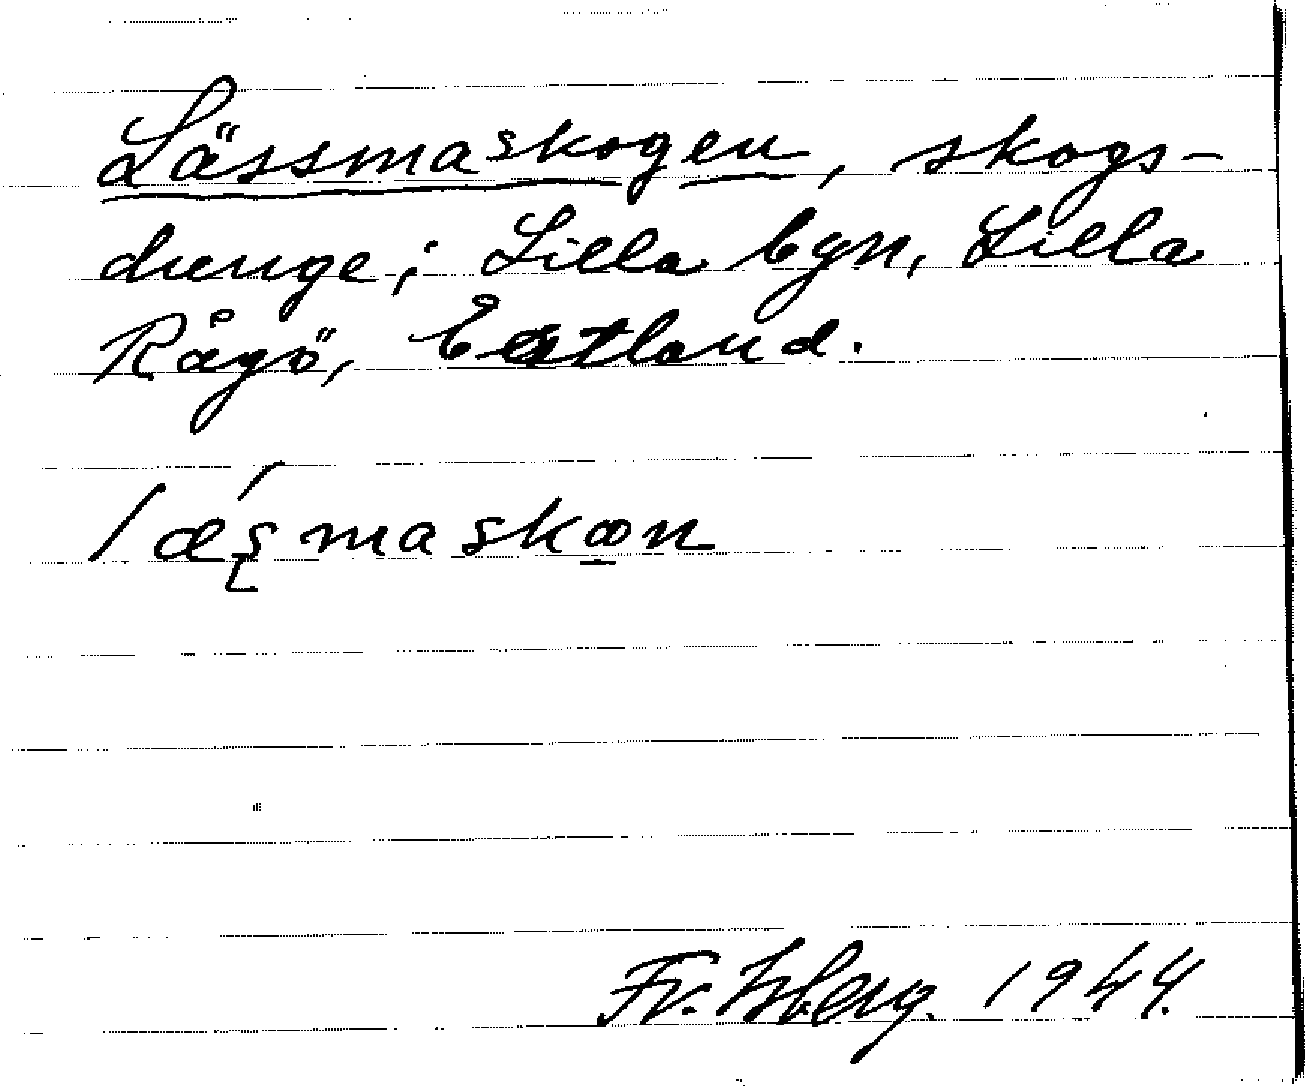 Lässmaskogen, skogs-
dunge; Lilla byn, Lilla
Rågö, Estland.
lǽs̨maskꝏn
Fr. Isberg. 1944.